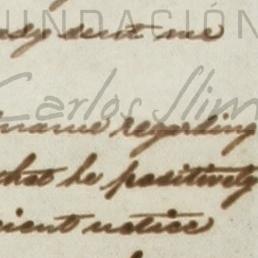 FUNDACIÓN
ady sent me
Carlos Slim
mance regarding
that he positively
cient notice